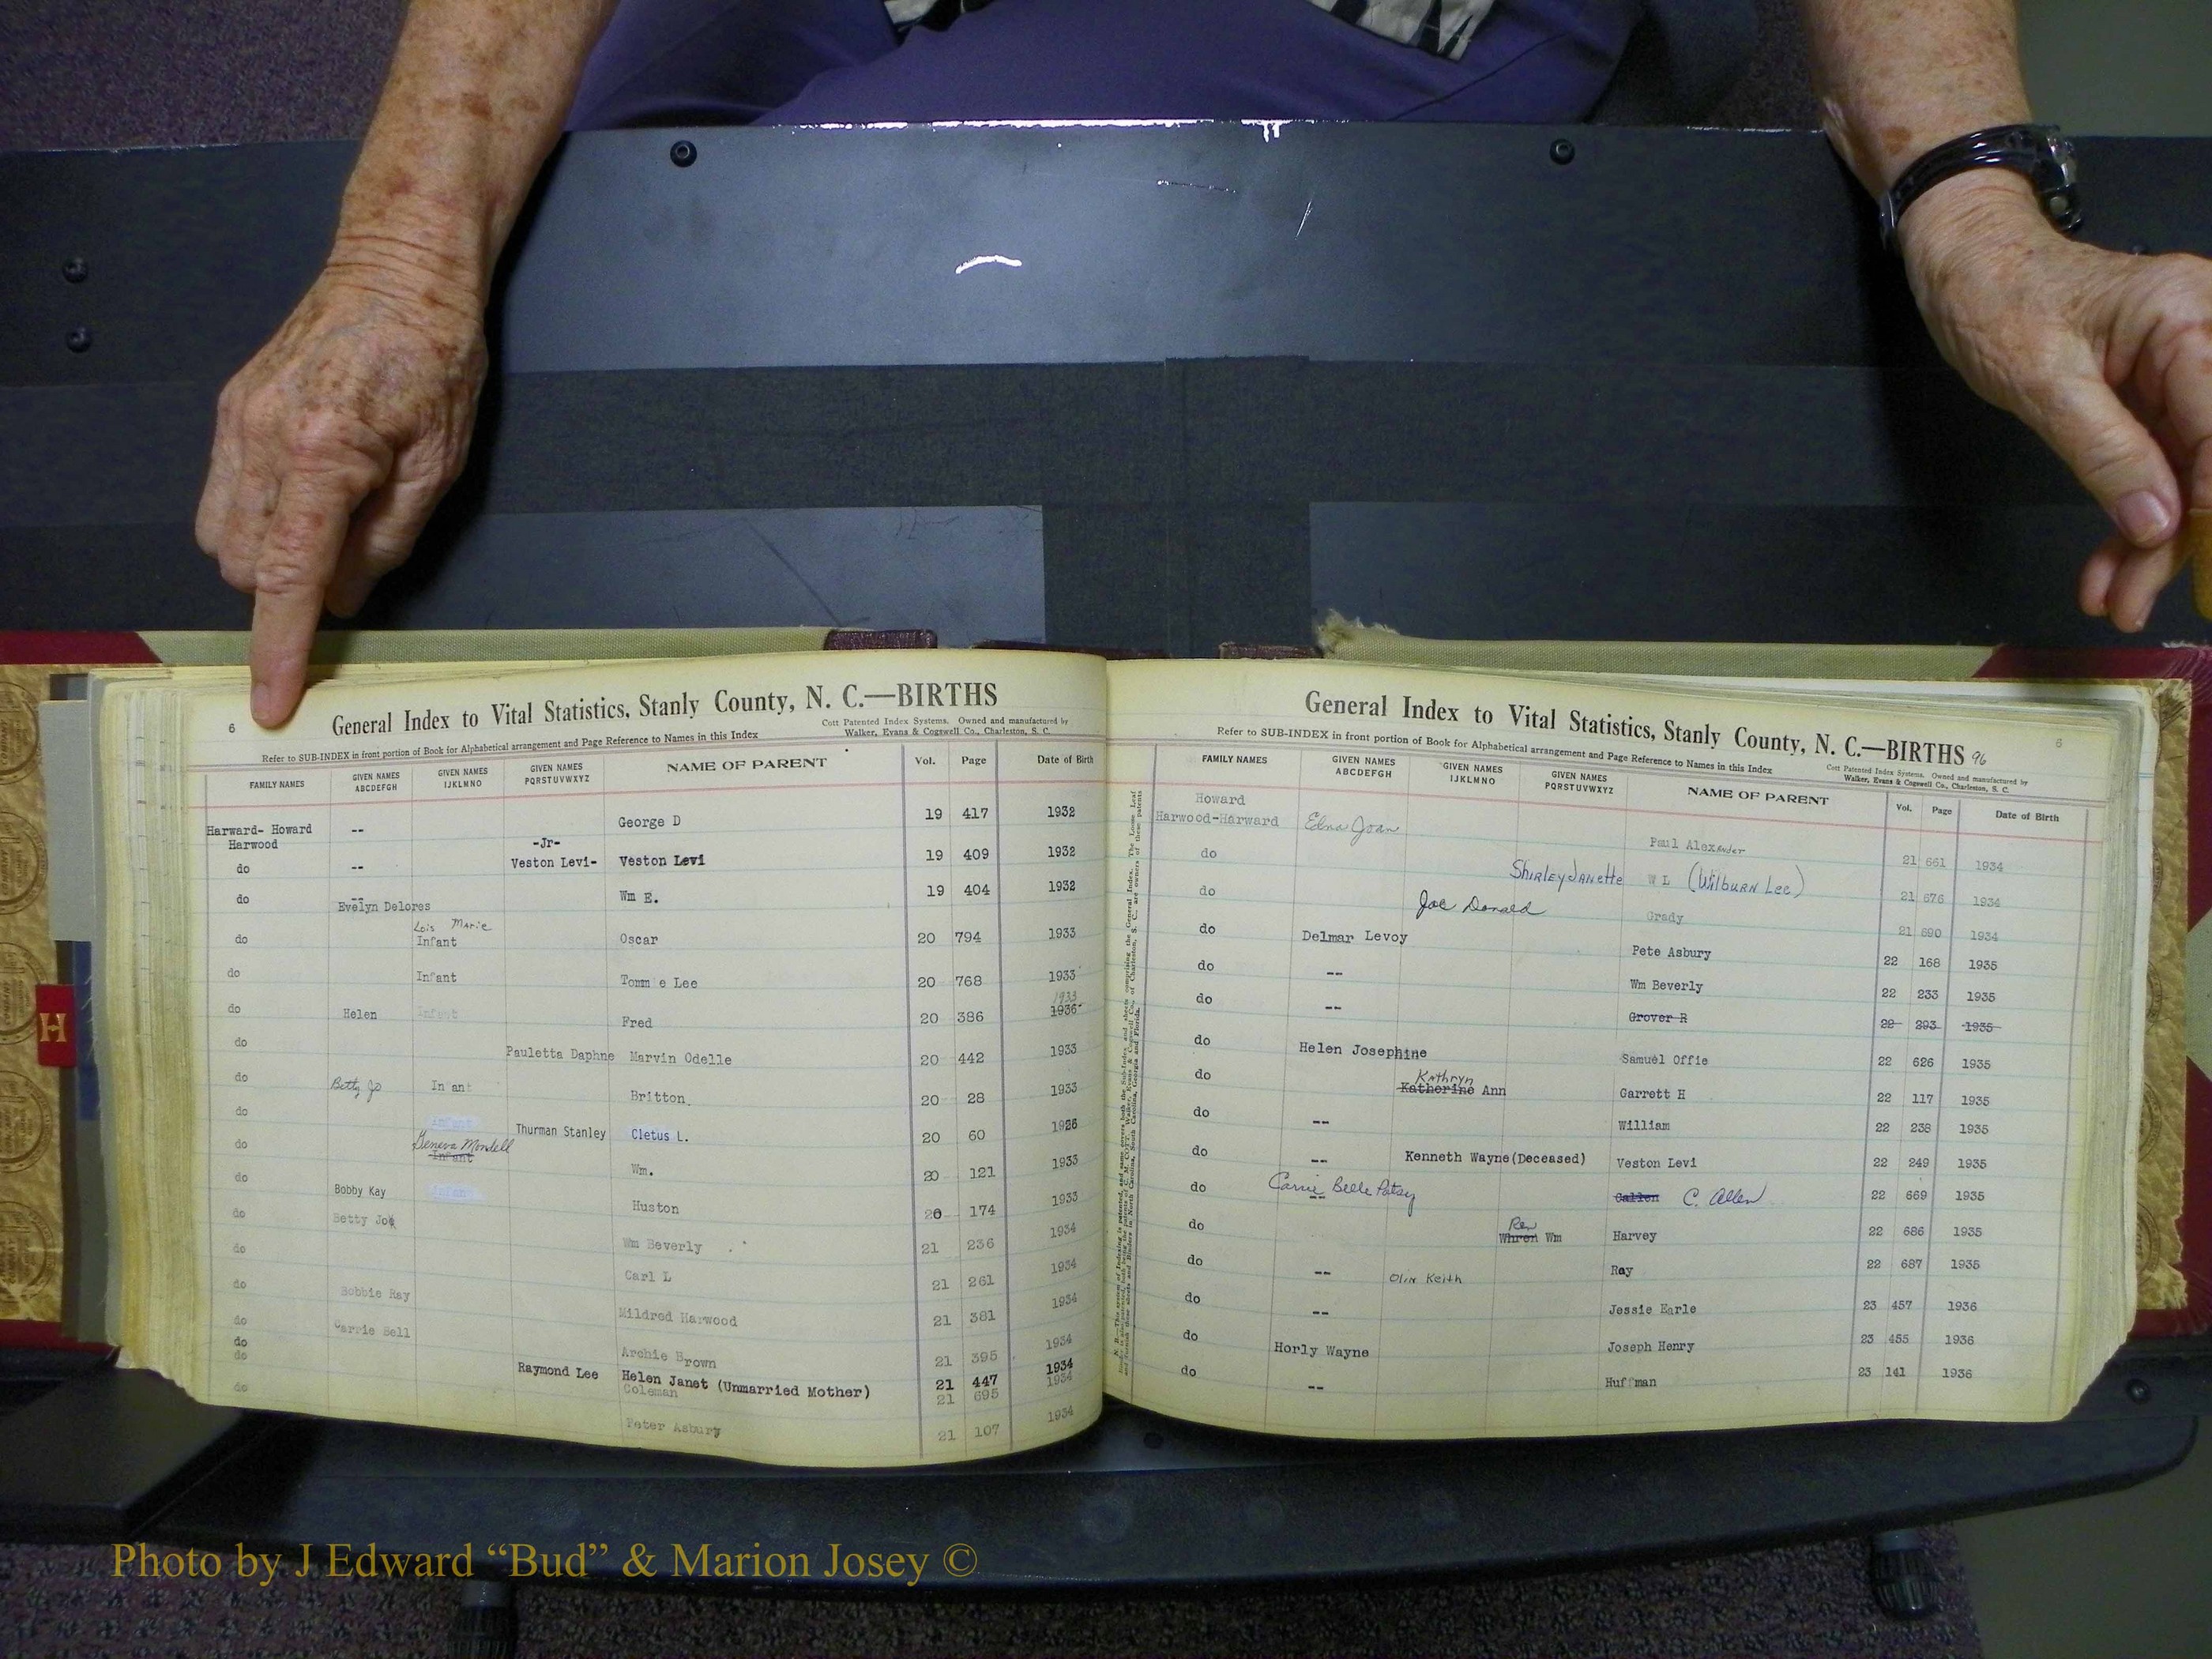 6
General Index to Vital Statistics, Stanly County, N. C.—BIRTHS
Cott Patented Index Systems. Owned and manufactured by
Walker, Evans & Cogswell Co., Charleston, S. C.
Refer to SUB-INDEX in front portion of Book for Alphabetical arrangement and Page Reference to Names in this Index
FAMILY NAMES GIVEN NAMES ABCDEFGH GIVEN NAMES IJKLMNO GIVEN NAMES PQRSTUVWXYZ NAME OF PARENT Vol. Page Date of Birth
Harward- Howard -- George D 19 417 1932
Harwood -Jr-
do -- Veston Levi- Veston Levi 19 409 1932
do -- Wm E. 19 404 1932
Evelyn Delores
Lois Marie
do Infant Oscar 20 794 1933
do Infant Tomm e Lee 20 768 1933
1933
do Helen Infant Fred 20 386 1936
do Pauletta Daphne Marvin Odelle 20 442 1933
do Betty Jo In ant Britton 20 28 1933
do Infant Thurman Stanley Cletus L. 20 60 1926
do Geneva Mondell
Infant Wm. 20 121 1933
do Bobby Kay Infant Huston 20 174 1933
do Betty Jo Wm Beverly 21 236 1934
do Carl L 21 261 1934
do Bobbie Ray Mildred Harwood 21 381 1934
do Carrie Bell Archie Brown 21 395 1934
do Raymond Lee Helen Janet (Unmarried Mother) 21 447 1934
do Coleman 21 695 1934
do Peter Asbury 21 107 1934
H
6
General Index to Vital Statistics, Stanly County, N. C.—BIRTHS 96
Refer to SUB-INDEX in front portion of Book for Alphabetical arrangement and Page Reference to Names in this Index
Cott Patented Index Systems. Owned and manufactured by
Walker, Evans & Cogswell Co., Charleston, S. C.
FAMILY NAMES GIVEN NAMES ABCDEFGH GIVEN NAMES IJKLMNO GIVEN NAMES PQRSTUVWXYZ NAME OF PARENT Vol. Page Date of Birth
Howard
Harwood-Harward Edna Joan Paul Alexander 21 661 1934
do Shirley Janette W L (Wilburn Lee) 21 676 1934
do Joe Donald Grady 21 690 1934
do Delmar Levoy Pete Asbury 22 168 1935
do -- Wm Beverly 22 233 1935
do -- Grover R 22 293 1935
do Helen Josephine Samuel Offie 22 626 1935
Kathryn
do Katherine Ann Garrett H 22 117 1935
do -- William 22 238 1935
do -- Kenneth Wayne(Deceased) Veston Levi 22 249 1935
do Carrie Belle Patsy -- Callen C. Allen 22 669 1935
Ren
do Whren Wm Harvey 22 686 1935
do -- Olin Keith Ray 22 687 1935
do -- Jessie Earle 23 457 1936
do Horly Wayne Joseph Henry 23 455 1936
do -- Huffman 23 141 1936
Photo by J Edward “Bud” & Marion Josey ©